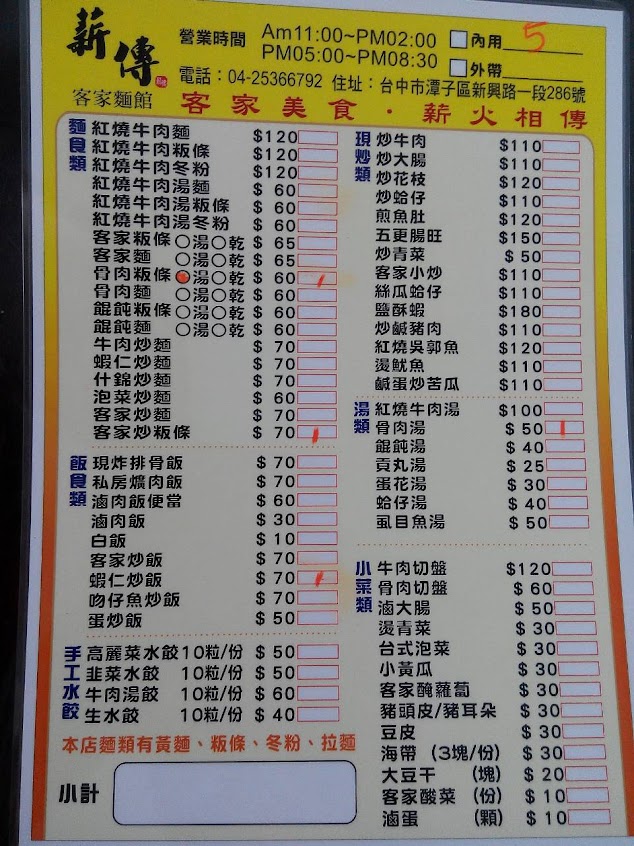 薪傳
客家麵館
營業時間 Am11:00~PM02:00
PM05:00~PM08:30
內用 5
外帶
電話：04-25366792 住址：台中市潭子區新興路一段286號
客家美食．薪火相傳
麵食類
紅燒牛肉麵 $120
紅燒牛肉粄條 $120
紅燒牛肉冬粉 $120
紅燒牛肉湯麵 $ 60
紅燒牛肉湯粄條 $ 60
紅燒牛肉湯冬粉 $ 60
客家粄條 ○湯○乾 $ 65
客家麵 ○湯○乾 $ 65
骨肉粄條 ○湯○乾 $ 60 1
骨肉麵 ○湯○乾 $ 60
餛飩粄條 ○湯○乾 $ 60
餛飩麵 ○湯○乾 $ 60
牛肉炒麵 $ 70
蝦仁炒麵 $ 70
什錦炒麵 $ 70
泡菜炒麵 $ 60
客家炒麵 $ 70
客家炒粄條 $ 70 1
飯食類
現炸排骨飯 $ 70
私房爌肉飯 $ 70
滷肉飯便當 $ 60
滷肉飯 $ 30
白飯 $ 10
客家炒飯 $ 70
蝦仁炒飯 $ 70 1
吻仔魚炒飯 $ 70
蛋炒飯 $ 50
手工水餃
高麗菜水餃 10粒/份 $ 50
韭菜水餃 10粒/份 $ 50
牛肉湯餃 10粒/份 $ 60
生水餃 10粒/份 $ 40
本店麵類有黃麵、粄條、冬粉、拉麵
小計
現炒類
炒牛肉 $110
炒大腸 $110
炒花枝 $120
炒蛤仔 $110
煎魚肚 $120
五更腸旺 $150
炒青菜 $ 50
客家小炒 $110
絲瓜蛤仔 $110
鹽酥蝦 $180
炒鹹豬肉 $110
紅燒吳郭魚 $120
燙魷魚 $110
鹹蛋炒苦瓜 $110
湯類
紅燒牛肉湯 $100
骨肉湯 $ 50 1
餛飩湯 $ 40
貢丸湯 $ 25
蛋花湯 $ 30
蛤仔湯 $ 40
虱目魚湯 $ 50
小菜類
牛肉切盤 $120
骨肉切盤 $ 60
滷大腸 $ 50
燙青菜 $ 30
台式泡菜 $ 30
小黃瓜 $ 30
客家醃蘿蔔 $ 30
豬頭皮/豬耳朵 $ 30
豆皮 $ 30
海帶 (3塊/份) $ 30
大豆干 (塊) $ 20
客家酸菜 (份) $ 10
滷蛋 (顆) $ 10